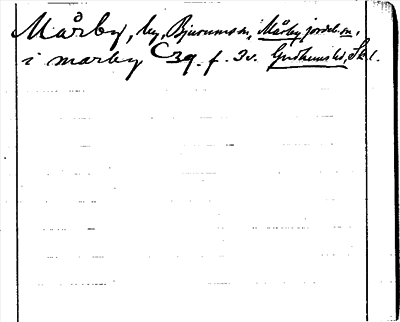 Mårby, by, Bjurums sn, Mårby jordeb. sn,
i marby C39. f. 3v. Gudhems hd, Sk. l.